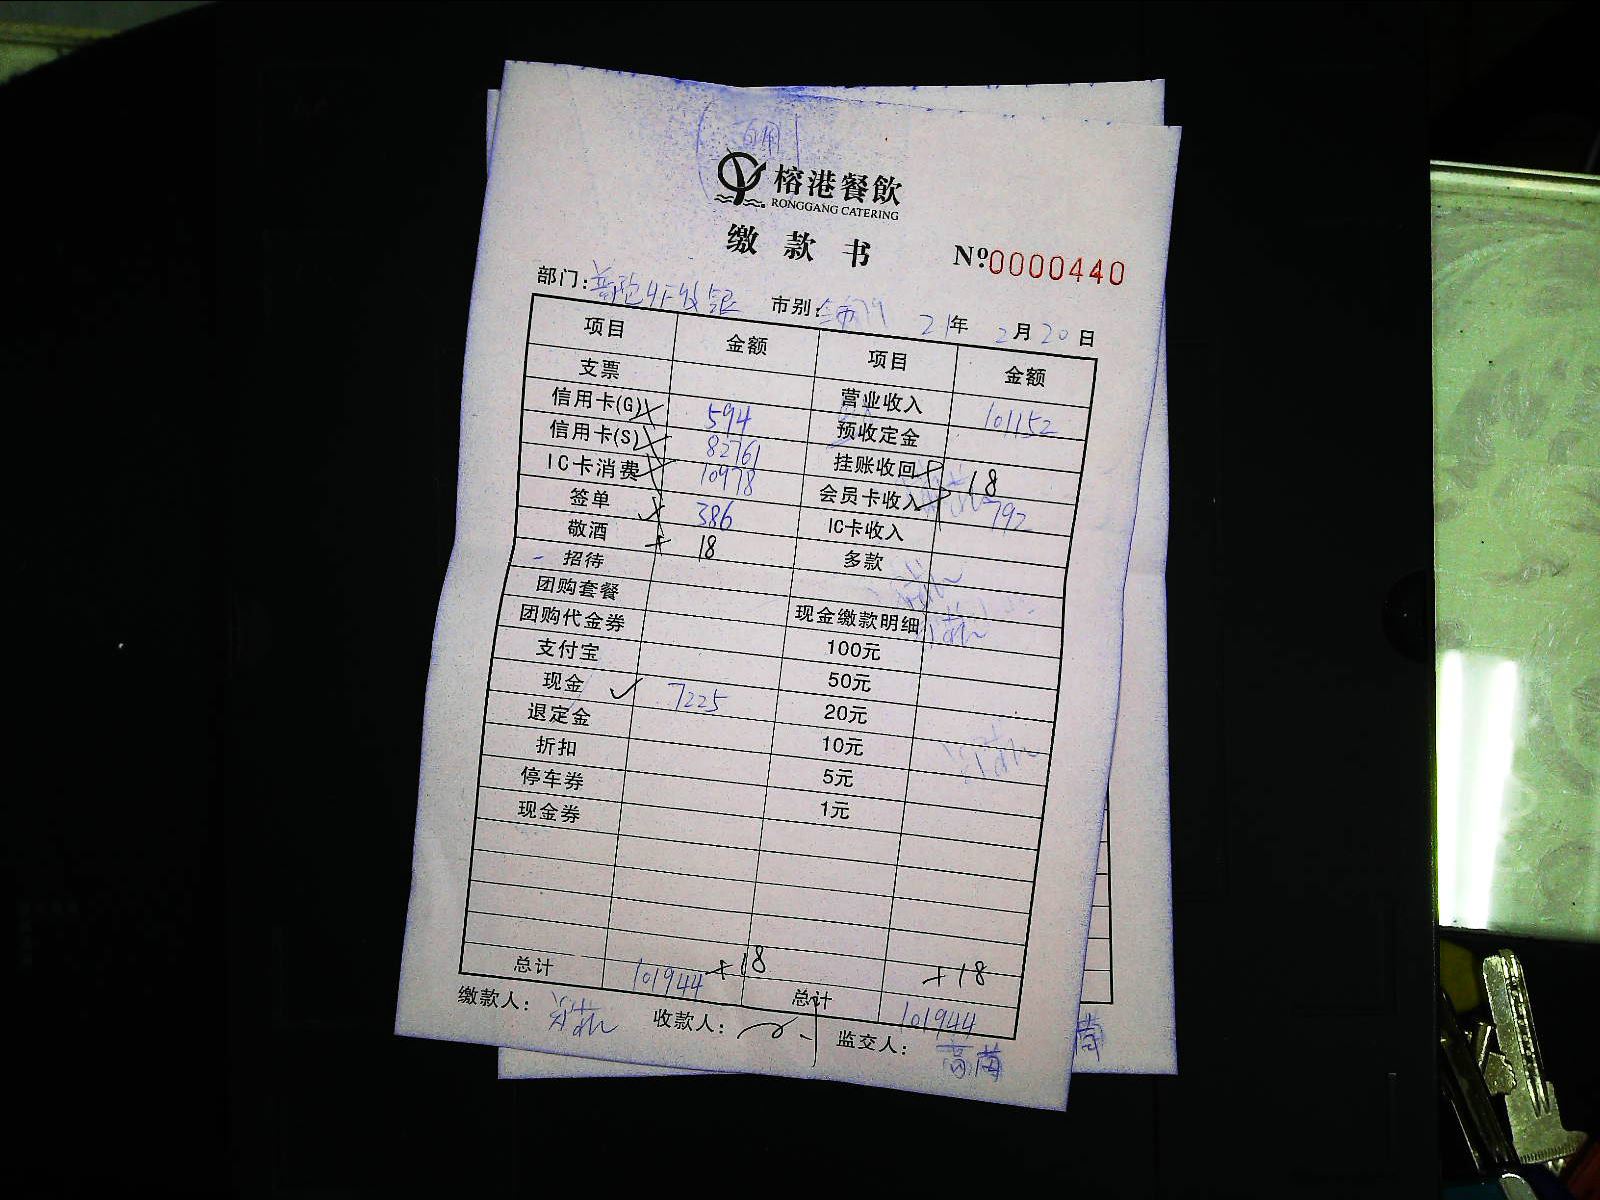 榕港餐飲
RONGGANG CATERING
缴款书 Nº0000440
部门: 市别: 21年 2月20日
项目 金额 项目 金额
支票 营业收入 101152
信用卡(G) 594 预收定金
信用卡(S) 82761 挂账收回 18
IC卡消费 10978 会员卡收入 792
签单 386 IC卡收入
敬酒 18 多款
招待
团购套餐 现金缴款明细
团购代金券 100元
支付宝 50元
现金 ✓ 7225 20元
退定金 10元
折扣 5元
停车券 1元
现金券
总计 101944 +18 总计 101944 +18
缴款人: 收款人: 监交人: